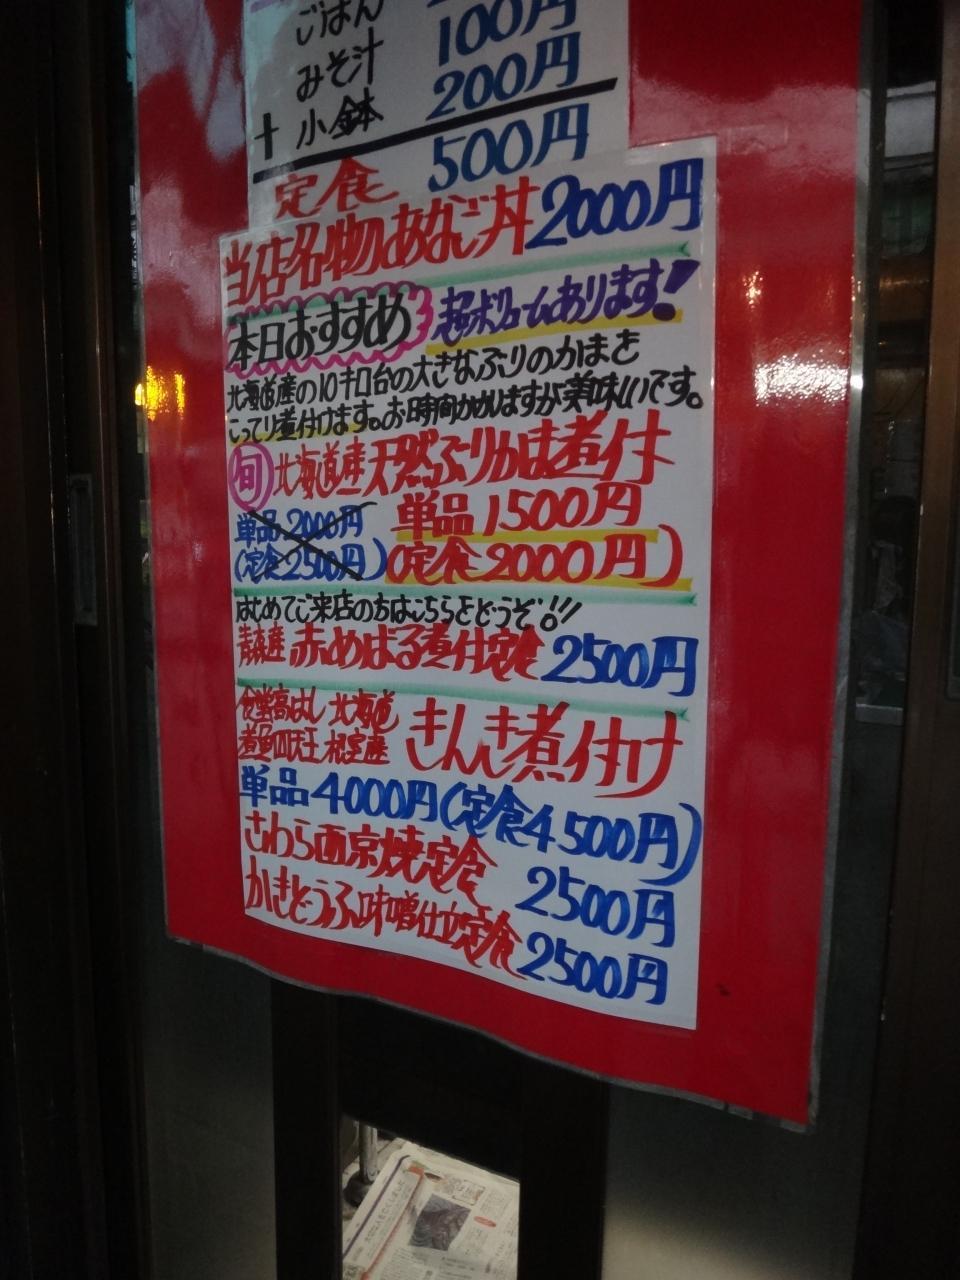 ごはん
みそ汁 100円
+ 小鉢 200円
定食 500円
当店名物あなご丼 2000円
本日おすすめ 超ボリュームあります!
北海道産の10キロ台の大きなぶりのかまを
こってり煮付けます。お時間かかりますが美味しいです。
旬 北海道産天然ぶりかま煮付
単品2000円 単品1500円
(定食2500円) (定食2000円)
はじめてご来店の方はこちらをどうぞ!!
青森産 赤めばる煮付定食 2500円
食堂高はし 北海道
煮魚四天王 根室産 きんき煮付け
単品4000円(定食4500円)
さわら西京焼定食 2500円
かきとうふ味噌仕立定食 2500円